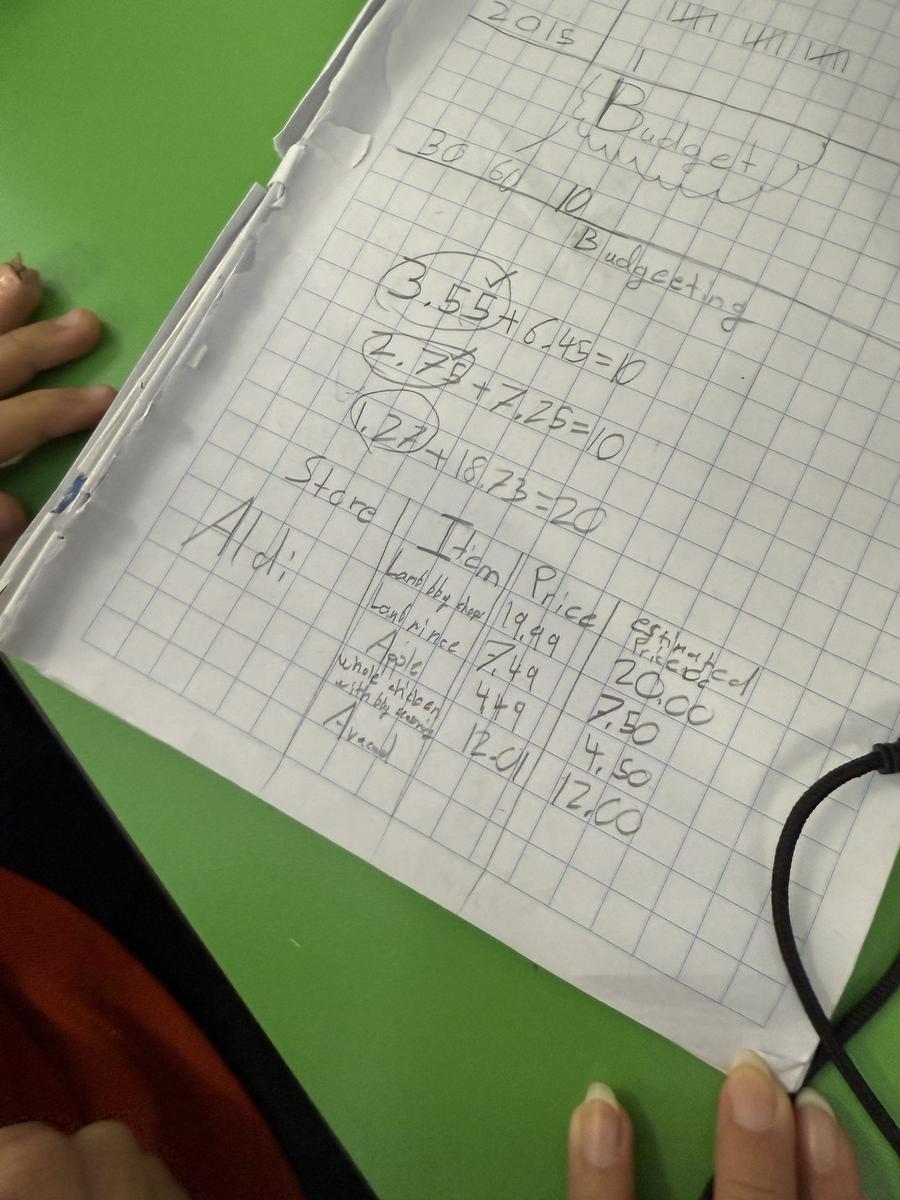 2015
Budget
30 60 10
Budgeeting
3.55 + 6.45 = 10
2.75 + 7.25 = 10
1.27 + 18.73 = 20
Store Item Price estimated
Price
Aldi Lamb bbq chops 19.99 20.00
Lamb mince 7.49 7.50
Apple 4.49 4.50
whole chicken
with bbq 12.01 12.00
Avacad